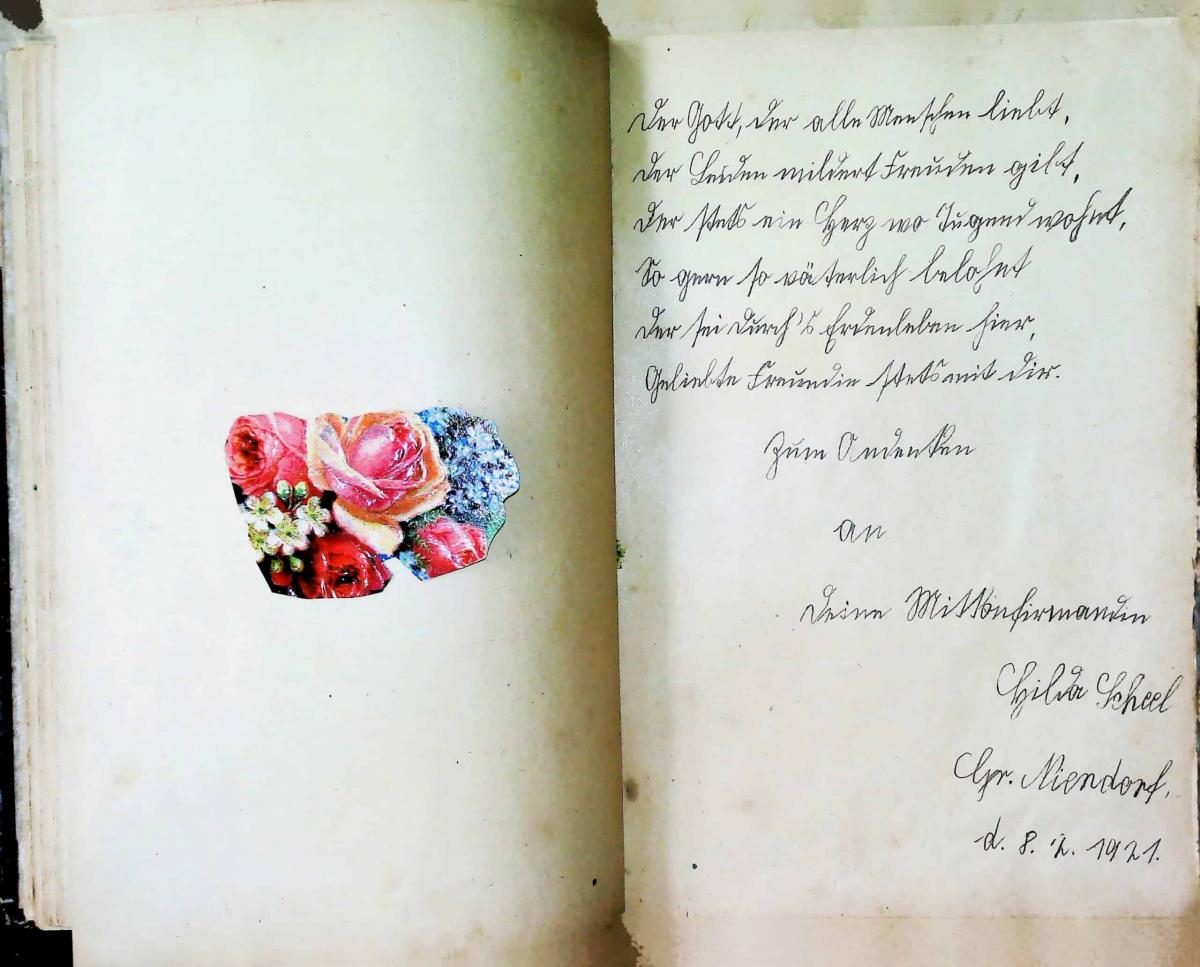 Der Gott, der alle Menschen liebt,
der Leiden mildert Freuden gibt,
Der stets ein Herz wo Tugend wohnt,
So gern so väterlich belohnt
Der sei durch's Erdenleben hier,
Geliebte Freundin stets mit dir.
Zum Andenken
an
Deine Mitkonfirmandin
Hilda Scheel
Gr. Niendorf,
d. 8. 2. 1921.